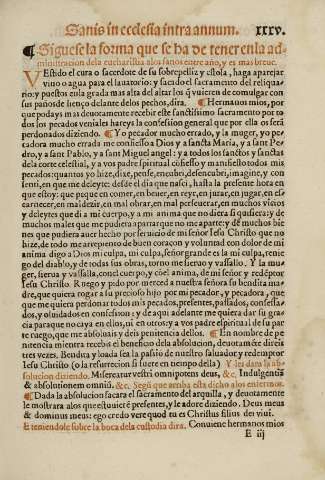 Sanis in ecclesia intra annum. xxxv.
¶ Siguese la forma que se ha de tener enla ad-
ministracion dela eucharistia alos sanos entre año, y es mas breue.
VEstido el cura o sacerdote de su sobrepelliz y estola, haga aparejar
vino o agua para el lauatorio: y sacado el sacramento del reliqua-
rio: y puestos en la grada mas alta del altar los q̃ vuieren de comulgar con
sus paños de lienço delante delos pechos, dira. ¶ Hermanos mios, por
que podays mas deuotamente recebir este sanctissimo sacramento por to
dos los pecados veniales hareys la confession general que por ella os serã
perdonados diziendo. ¶ Yo pecador mucho errado, y la muger, yo pe
cadora mucho errada me confiessoa a Dios y a sancta Maria, y a sant Pe
dro, y a sant Pablo, y a sant Miguel angel: y a todos los sanctos y sanctas
dela corte celestial, y a vos padre spiritual cõfiesso y manifiesto todos mis
pecados: quantos yo hize, dixe, pense, encubri, desencubri, imagine, y con
senti, en que me deleyte: desde el dia que nasci, hasta la presente hora en
que estoy: que peque en comer, en beuer, en reyr, en jurar, en jugar, en es-
carnecer, en maldezir, en mal obrar, en mal perseuerar, en muchos vicios
y deleytes que di a mi cuerpo, y a mi anima que no diera si quisiera: y de
muchos males que me pudiera apartar que no me aparte: y d̃ muchos bie
nes que pudiera auer hecho por seruicio de mi señor Iesu Christo que no
hize, de todo me arrepiento de buen coraçon y voluntad con dolor de mi
anima digo a Dios mi culpa, mi culpa, señor grande es la mi culpa, renie
go del diablo, y de todas sus obras, torno me sieruo y vassallo. Y la mu-
ger, sierua y vassalla, con el cuerpo, y cõel anima, de mi señor y redẽptor
Iesu Christo. Ruego y pido por merced a nuestra señora su bendita ma
dre, que quiera rogar a su precioso hijo por mi pecador, y pecadora, que
me quiera perdonar todos mis pecados, presentes, passados, confessa
dos, y oluidados en confession: y de aqui adelante me quiera dar su gra
cia para que no caya en ellos, ni en otros: y a vos padre spiritual de su par
te ruego, que me absoluays y deis penitencia dellos. ¶ En nombre de pe
nitencia mientra recebis el beneficio dela absolucion, deuotamẽte direis
tres vezes. Bendita y loada sea la passiõ de nuestro saluador y redemptor
Iesu Christo (o la resurrecion si fuere en tiempo della) Y les dara la ab-
solucion diziendo. Misereatur vestri omnipotens deus, &c. Indulgentiã
& absolutionem omniũ. &c. Segũ que arriba esta dicho alos enfermos.
¶ Dada la absolucion sacara el sacramento del arquilla, y deuotamente
le mostrara alos que estuuierẽ presentes, y le adore diziendo. Deus meus
& dominus meus: ego credo vere quod tu es Christus filius dei viui.
E teniendole sobre la boca dela custodia dira. Conuiene hermanos mios
E iij